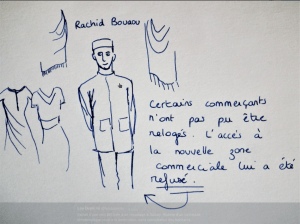 Rachid Bouaou
Certains commerçants
n'ont pas pu être
relogés. L'accès à
la nouvelle zone
commerciale lui a été
refusé.